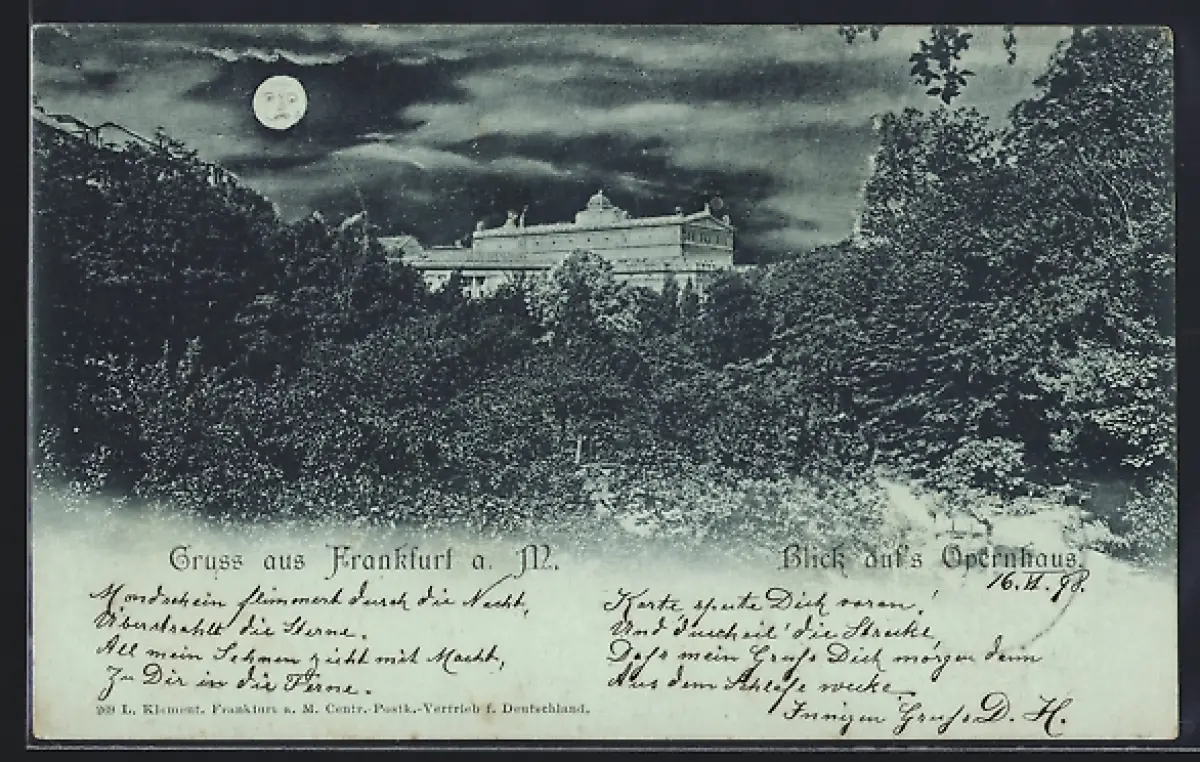 Gruss aus Frankfurt a. M.
Blick auf's Opernhaus.
16. II. 98.
Mondschein flimmert durch die Nacht,
Überstrahlt die Sterne.
All mein Sehnen zieht mit Macht,
Zu Dir in die Ferne.
Karte, spute Dich voran!
Und durcheil' die Strecke,
Dass mein Gruss Dich morgen dann
Aus dem Schlafe wecke
Innigen Gruss D. H.
269 L. Klement, Frankfurt a. M. Centr.-Postk.-Vertrieb f. Deutschland.